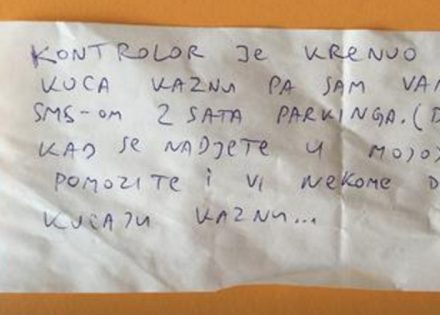 KONTROLOR JE KRENUO
KUCA KAZNU PA SAM VAM
SMS-om 2 SATA PARKINGA. (D
KAD SE NADJETE U MOJOJ
POMOZITE i VI NEKOME D
KUCAJU KAZNU...